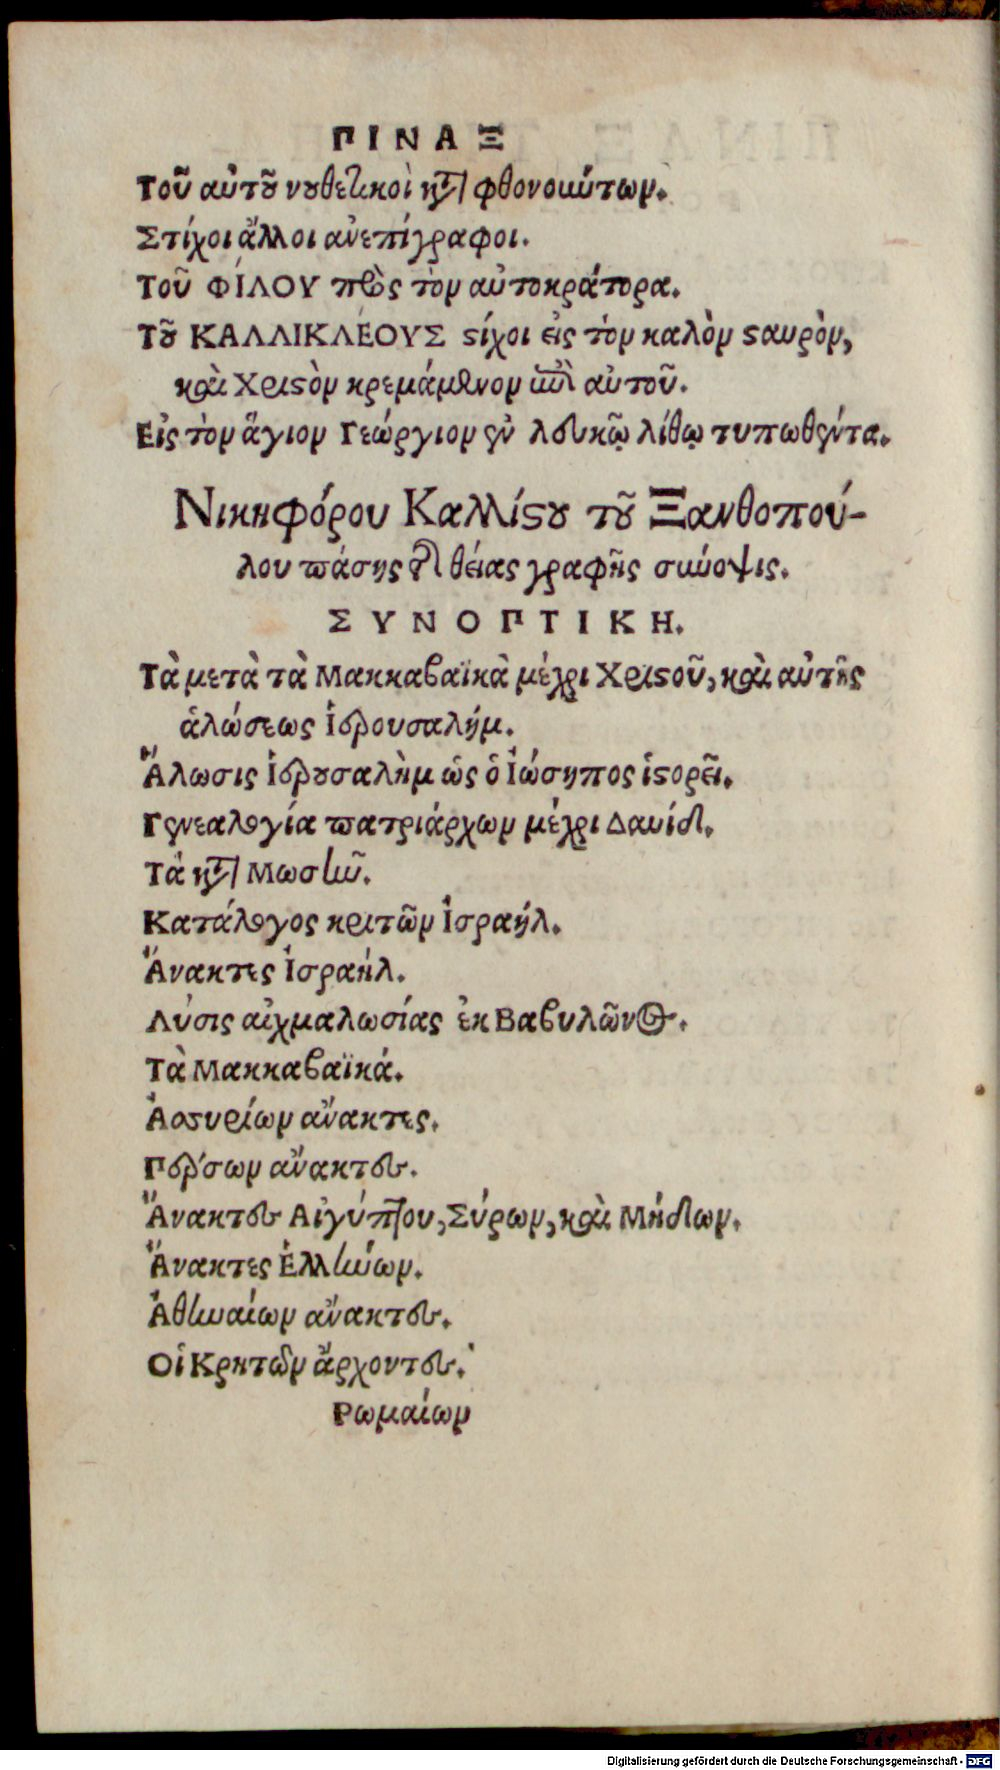 ΠΙΝΑΞ
Τοῦ αὐτοῦ νουθετικοὶ κατὰ φθονοιώτων.
Στίχοι ἄλλοι ἀνεπίγραφοι.
Τοῦ ΦΊΛΟΥ πρὸς τὸν αὐτοκράτορα.
Τοῦ ΚΑΛΛΙΚΛΈΟΥΣ ϛίχοι εἰς τὸν καλὸν ϛαυρὸν,
καὶ Χριϛὸν κρεμάμενον ἐπὶ αὐτοῦ.
Εἰς τὸν ἅγιον Γεώργιον ἐν λευκῷ λίθῳ τυπωθέντα.
Νικηφόρου Καλλίϛου τοῦ Ξανθοπού-
λου πάσης τῆς θείας γραφῆς σύνοψις.
ΣΥΝΟΠΤΙΚΗ.
Τὰ μετὰ τὰ Μακκαβαϊκὰ μέχρι Χριϛοῦ, καὶ αὐτῆς
ἁλώσεως Ἱερουσαλήμ.
Ἅλωσις Ἱερουσαλὴμ ὡς ὁ Ἰώσηπος ἱϛορεῖ.
Γενεαλογία πατριάρχων μέχρι Δαυίδ.
Τά κατὰ Μωσῆν.
Κατάλογος κριτῶν Ἰσραήλ.
Ἄνακτες Ἰσραήλ.
Λύσις αἰχμαλωσίας ἐκ Βαβυλῶνος.
Τὰ Μακκαβαϊκά.
Ἀσσυρίων ἄνακτες.
Περσων ἄνακτες.
Ἄνακτες Αἰγύπτου, Σύρων, καὶ Μήδων.
Ἄνακτες Ἑλλήνων.
Ἀθηναίων ἄνακτες.
Οἱ Κρητῶν ἄρχοντες.
Ρωμαίων
Digitalisierung gefördert durch die Deutsche Forschungsgemeinschaft - DFG